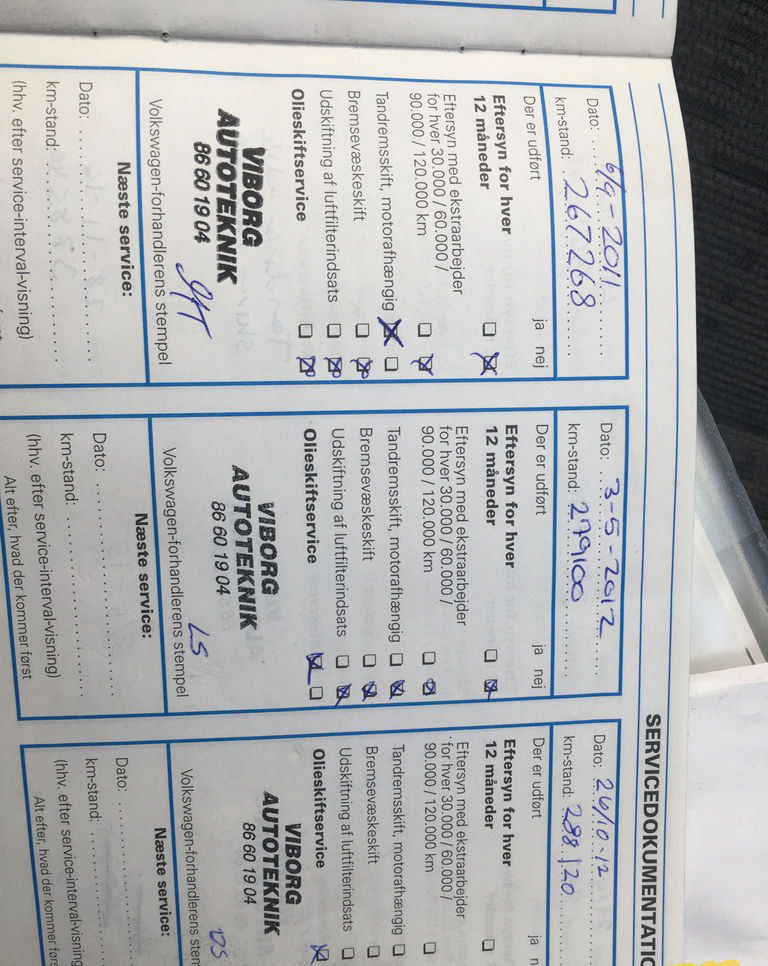 SERVICEDOKUMENTATIO
Dato: 6/9-2011
km-stand: 267268
Der er udført ja nej
Eftersyn for hver
12 måneder
Eftersyn med ekstraarbejder
for hver 30.000 / 60.000 /
90.000 / 120.000 km
Tandremsskift, motorafhængig
Bremsevæskeskift
Udskiftning af luftfilterindsats
Olieskiftservice
VIBORG
AUTOTEKNIK
86 60 19 04
Volkswagen-forhandlerens stempel
Næste service:
Dato:
km-stand:
(hhv. efter service-interval-visning)
Dato: 3-5-2012
km-stand: 279100
Der er udført ja nej
Eftersyn for hver
12 måneder
Eftersyn med ekstraarbejder
for hver 30.000 / 60.000 /
90.000 / 120.000 km
Tandremsskift, motorafhængig
Bremsevæskeskift
Udskiftning af luftfilterindsats
Olieskiftservice
VIBORG
AUTOTEKNIK
86 60 19 04
LS
Volkswagen-forhandlerens stempel
Næste service:
Dato:
km-stand:
(hhv. efter service-interval-visning)
Alt efter, hvad der kommer først
Dato: 26/10-12
km-stand: 288120
Der er udført ja n
Eftersyn for hver
12 måneder
Eftersyn med ekstraarbejder
for hver 30.000 / 60.000 /
90.000 / 120.000 km
Tandremsskift, motorafhængig
Bremsevæskeskift
Udskiftning af luftfilterindsats
Olieskiftservice
VIBORG
AUTOTEKNIK
86 60 19 04
DS
Volkswagen-forhandlerens stem
Næste service:
Dato:
km-stand:
(hhv. efter service-interval-visning
Alt efter, hvad der kommer førs